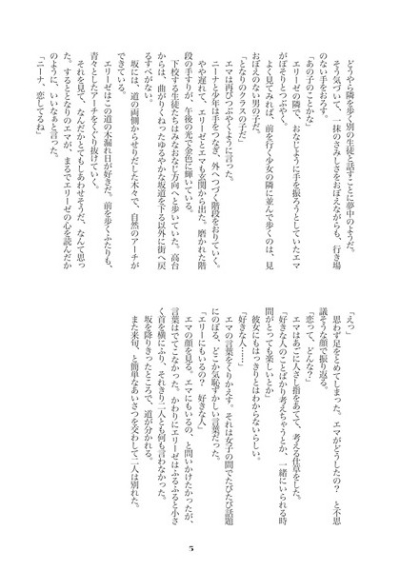 どうやら隣を歩く別の生徒と話すことに夢中のようだ。
　そう気づいて、一抹のさみしさをおぼえながらも、行き場
のない手をおろす。
「あの子のことかな」
　エリーゼの隣で、おなじように手を振ろうとしていたエマ
がぼそりとつぶやく。
　よく見てみれば、前を行く少女の隣に並んで歩くのは、見
おぼえのない男の子だ。
「となりのクラスの子だ」
　エマは再びつぶやくように言った。
　ニーナと少年は手をつなぎ、外へつづく階段をおりていく。
　やや遅れて、エリーゼとエマも玄関から出た。磨かれた階
段の手すりが、午後の光で金色に輝いている。
　下校する生徒たちはみなおなじ方向へと歩いていた。高台
からは、曲がりくねったゆるやかな坂道を下る以外に街へ戻
るすべがない。
　坂には、道の両側からせりだした木々で、自然のアーチが
できている。
　エリーゼはこの道の木漏れ日が好きだ。前を歩くふたりも、
青々としたアーチをくぐり抜けていく。
　それを見て、なんだかとてもしあわせそうだ、なんて思っ
た。するととなりのエマが、まるでエリーゼの心を読んだか
のように、いいなぁと言った。
「ニーナ、恋してるね」
「えっ」
　思わず足をとめてしまった。エマがどうしたの？　と不思
議そうな顔で振り返る。
「恋って、どんな？」
　エマはあごに人さし指をあてて、考える仕草をした。
「好きな人のことばかり考えちゃうとか、一緒にいられる時
間がとっても楽しいとか」
　彼女にもはっきりとはわからないらしい。
「好きな人……」
　エマの言葉をくりかえす。それは女子の間でたびたび話題
にのぼる、どこか気恥ずかしい言葉だった。
「エリーにもいるの？　好きな人」
　エマの顔を見る。エマにもいるの、と問いかけたかったが、
言葉はでてこなかった。かわりにエリーゼはふるふると小さ
く首を横にふり、それきり二人とも何も言わなかった。
　坂を降りきったところで、道が分かれる。
　また来週、と簡単なあいさつを交わして二人は別れた。
5